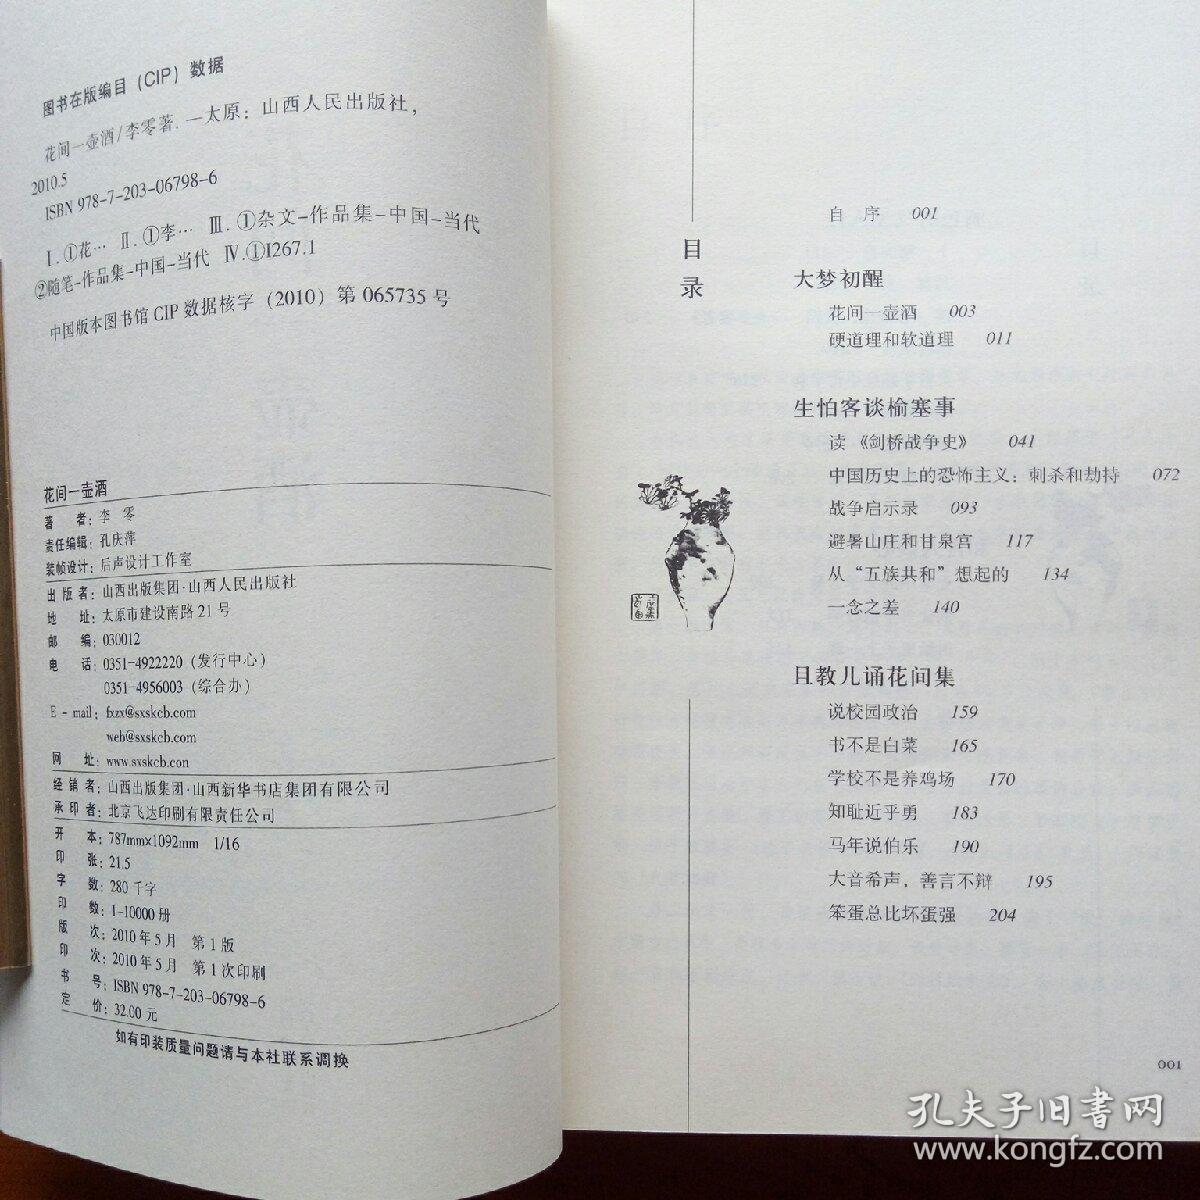 图书在版编目（CIP）数据
花间一壶酒/李零著.—太原：山西人民出版社，
2010.5
ISBN 978-7-203-06798-6
Ⅰ.①花… Ⅱ.①李… Ⅲ.①杂文-作品集-中国-当代
②随笔-作品集-中国-当代 Ⅳ.①I267.1
中国版本图书馆CIP数据核字（2010）第065735号
花间一壶酒
著 者：李 零
责任编辑：孔庆萍
装帧设计：后声设计工作室
出 版 者：山西出版集团·山西人民出版社
地 址：太原市建设南路21号
邮 编：030012
电 话：0351-4922220（发行中心）
0351-4956003（综合办）
E-mail：fxzx@sxskcb.com
web@sxskcb.com
网 址：www.sxskcb.con
经 销 者：山西出版集团·山西新华书店集团有限公司
承 印 者：北京飞达印刷有限责任公司
开 本：787mm×1092mm 1/16
印 张：21.5
字 数：280千字
印 数：1-10000册
版 次：2010年5月 第1版
印 次：2010年5月 第1次印刷
书 号：ISBN 978-7-203-06798-6
定 价：32.00元
如有印装质量问题请与本社联系调换
目录
自 序 001
大梦初醒
花间一壶酒 003
硬道理和软道理 011
生怕客谈榆塞事
读《剑桥战争史》 041
中国历史上的恐怖主义：刺杀和劫持 072
战争启示录 093
避暑山庄和甘泉宫 117
从“五族共和”想起的 134
一念之差 140
且教儿诵花间集
说校园政治 159
书不是白菜 165
学校不是养鸡场 170
知耻近乎勇 183
马年说伯乐 190
大音希声，善言不辩 195
笨蛋总比坏蛋强 204
001
孔夫子旧书网
www.kongfz.com